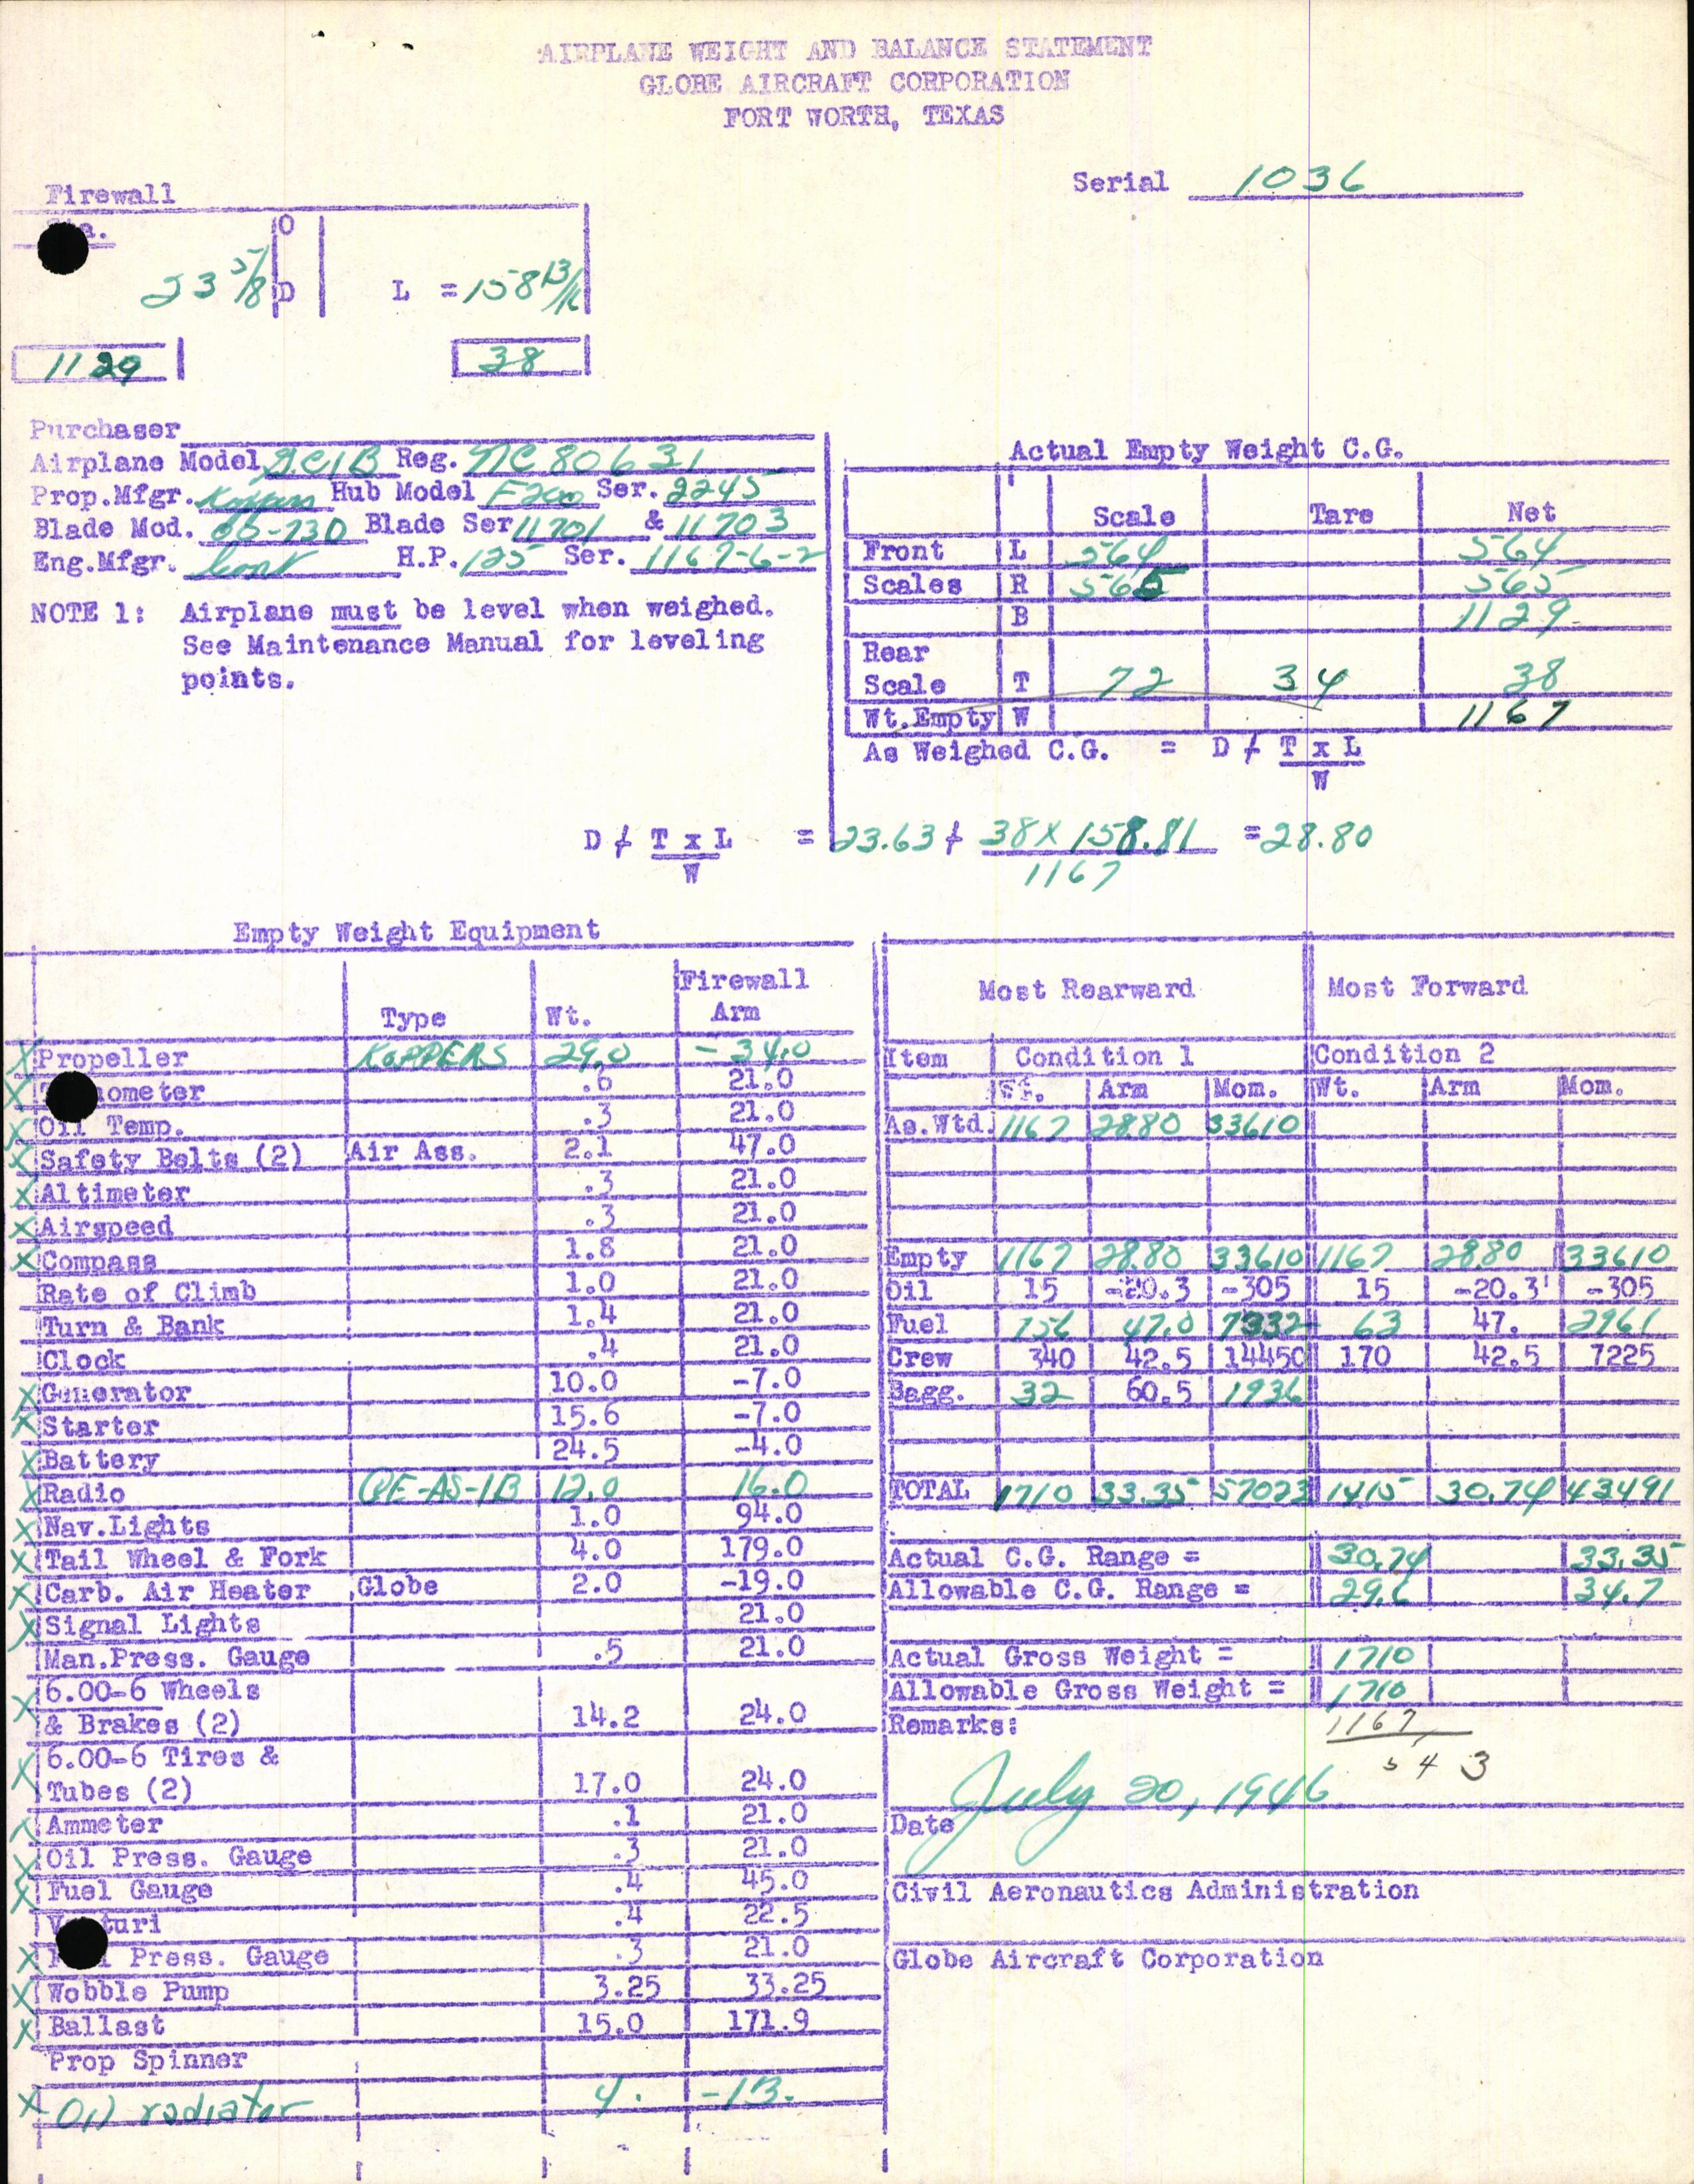 AIRPLANE WEIGHT AND BALANCE STATEMENT
GLOBE AIRCRAFT CORPORATION
FORT WORTH, TEXAS
Serial 1036
Firewall
O
23 5/8 D L = 158 13/16
1129 38
Purchaser
Airplane Model GC1B Reg. NC 80631
Prop.Mfgr. Koppers Hub Model F200 Ser. 2245
Blade Mod. 66-730 Blade Ser 11701 & 11703
Eng.Mfgr. Cont H.P. 125 Ser. 1167-6-2
NOTE 1: Airplane must be level when weighed.
See Maintenance Manual for leveling
points.
Actual Empty Weight C.G.
Scale Tare Net
Front L 564 564
Scales R 565 565
B 1129
Rear
Scale T 72 34 38
Wt.Empty W 1167
As Weighed C.G. = D + T x L
W
D + T x L = 23.63 + 38 x 158.81 = 28.80
W 1167
Empty Weight Equipment
Type Wt. Firewall Arm
X Propeller KOPPERS 29.0 -34.0
X ometer .6 21.0
X Oil Temp. .3 21.0
X Safety Belts (2) Air Ass. 2.1 47.0
X Altimeter .3 21.0
X Airspeed .3 21.0
X Compass 1.8 21.0
Rate of Climb 1.0 21.0
Turn & Bank 1.4 21.0
Clock .4 21.0
X Generator 10.0 -7.0
X Starter 15.6 -7.0
X Battery 24.5 -4.0
X Radio GE-AS-1B 12.0 16.0
X Nav.Lights 1.0 94.0
X Tail Wheel & Fork 4.0 179.0
X Carb. Air Heater Globe 2.0 -19.0
X Signal Lights 21.0
Man.Press. Gauge .5 21.0
X 6.00-6 Wheels
& Brakes (2) 14.2 24.0
X 6.00-6 Tires &
Tubes (2) 17.0 24.0
X Ammeter .1 21.0
X Oil Press. Gauge .3 21.0
X Fuel Gauge .4 45.0
V turi .4 22.5
X Press. Gauge .3 21.0
X Wobble Pump 3.25 33.25
X Ballast 15.0 171.9
Prop Spinner
X Oil radiator 4. -13.
Most Rearward Most Forward
Item Condition 1 Condition 2
Wt. Arm Mom. Wt. Arm Mom.
As.Wtd. 1167 28.80 33610
Empty 1167 28.80 33610 1167 28.80 33610
Oil 15 -20.3 -305 15 -20.3 -305
Fuel 156 47.0 7332 63 47. 2961
Crew 340 42.5 14450 170 42.5 7225
Bagg. 32 60.5 1936
TOTAL 1710 33.35 57023 1415 30.74 43491
Actual C.G. Range = 30.74 33.35
Allowable C.G. Range = 29.6 34.7
Actual Gross Weight = 1710
Allowable Gross Weight = 1710
Remarks: 1167
543
Date July 20, 1946
Civil Aeronautics Administration
Globe Aircraft Corporation